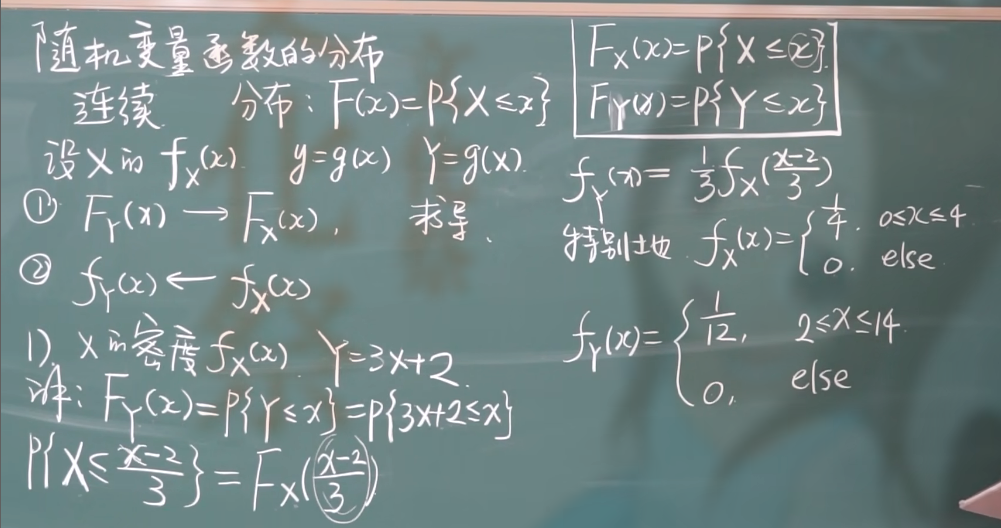 随机变量函数的分布
连续 分布：F(x)=P{X≤x}
设X的 f_X(x). y=g(x) Y=g(x).
① F_Y(x) → F_X(x), 求导、
② f_Y(x) ← f_X(x)
1). X的密度 f_X(x). Y=3X+2.
解: F_Y(x)=P{Y≤x}=P{3X+2≤x}
P{X≤\frac{x-2}{3}}=F_X(\frac{x-2}{3})
F_X(x)=P{X≤x}.
F_Y(x)=P{Y≤x}
f_Y(x)=\frac{1}{3}f_X(\frac{x-2}{3})
特别地 f_X(x)={\frac{1}{4}. 0≤x≤4.
0. else
f_Y(x)={\frac{1}{12}, 2≤x≤14.
0, else